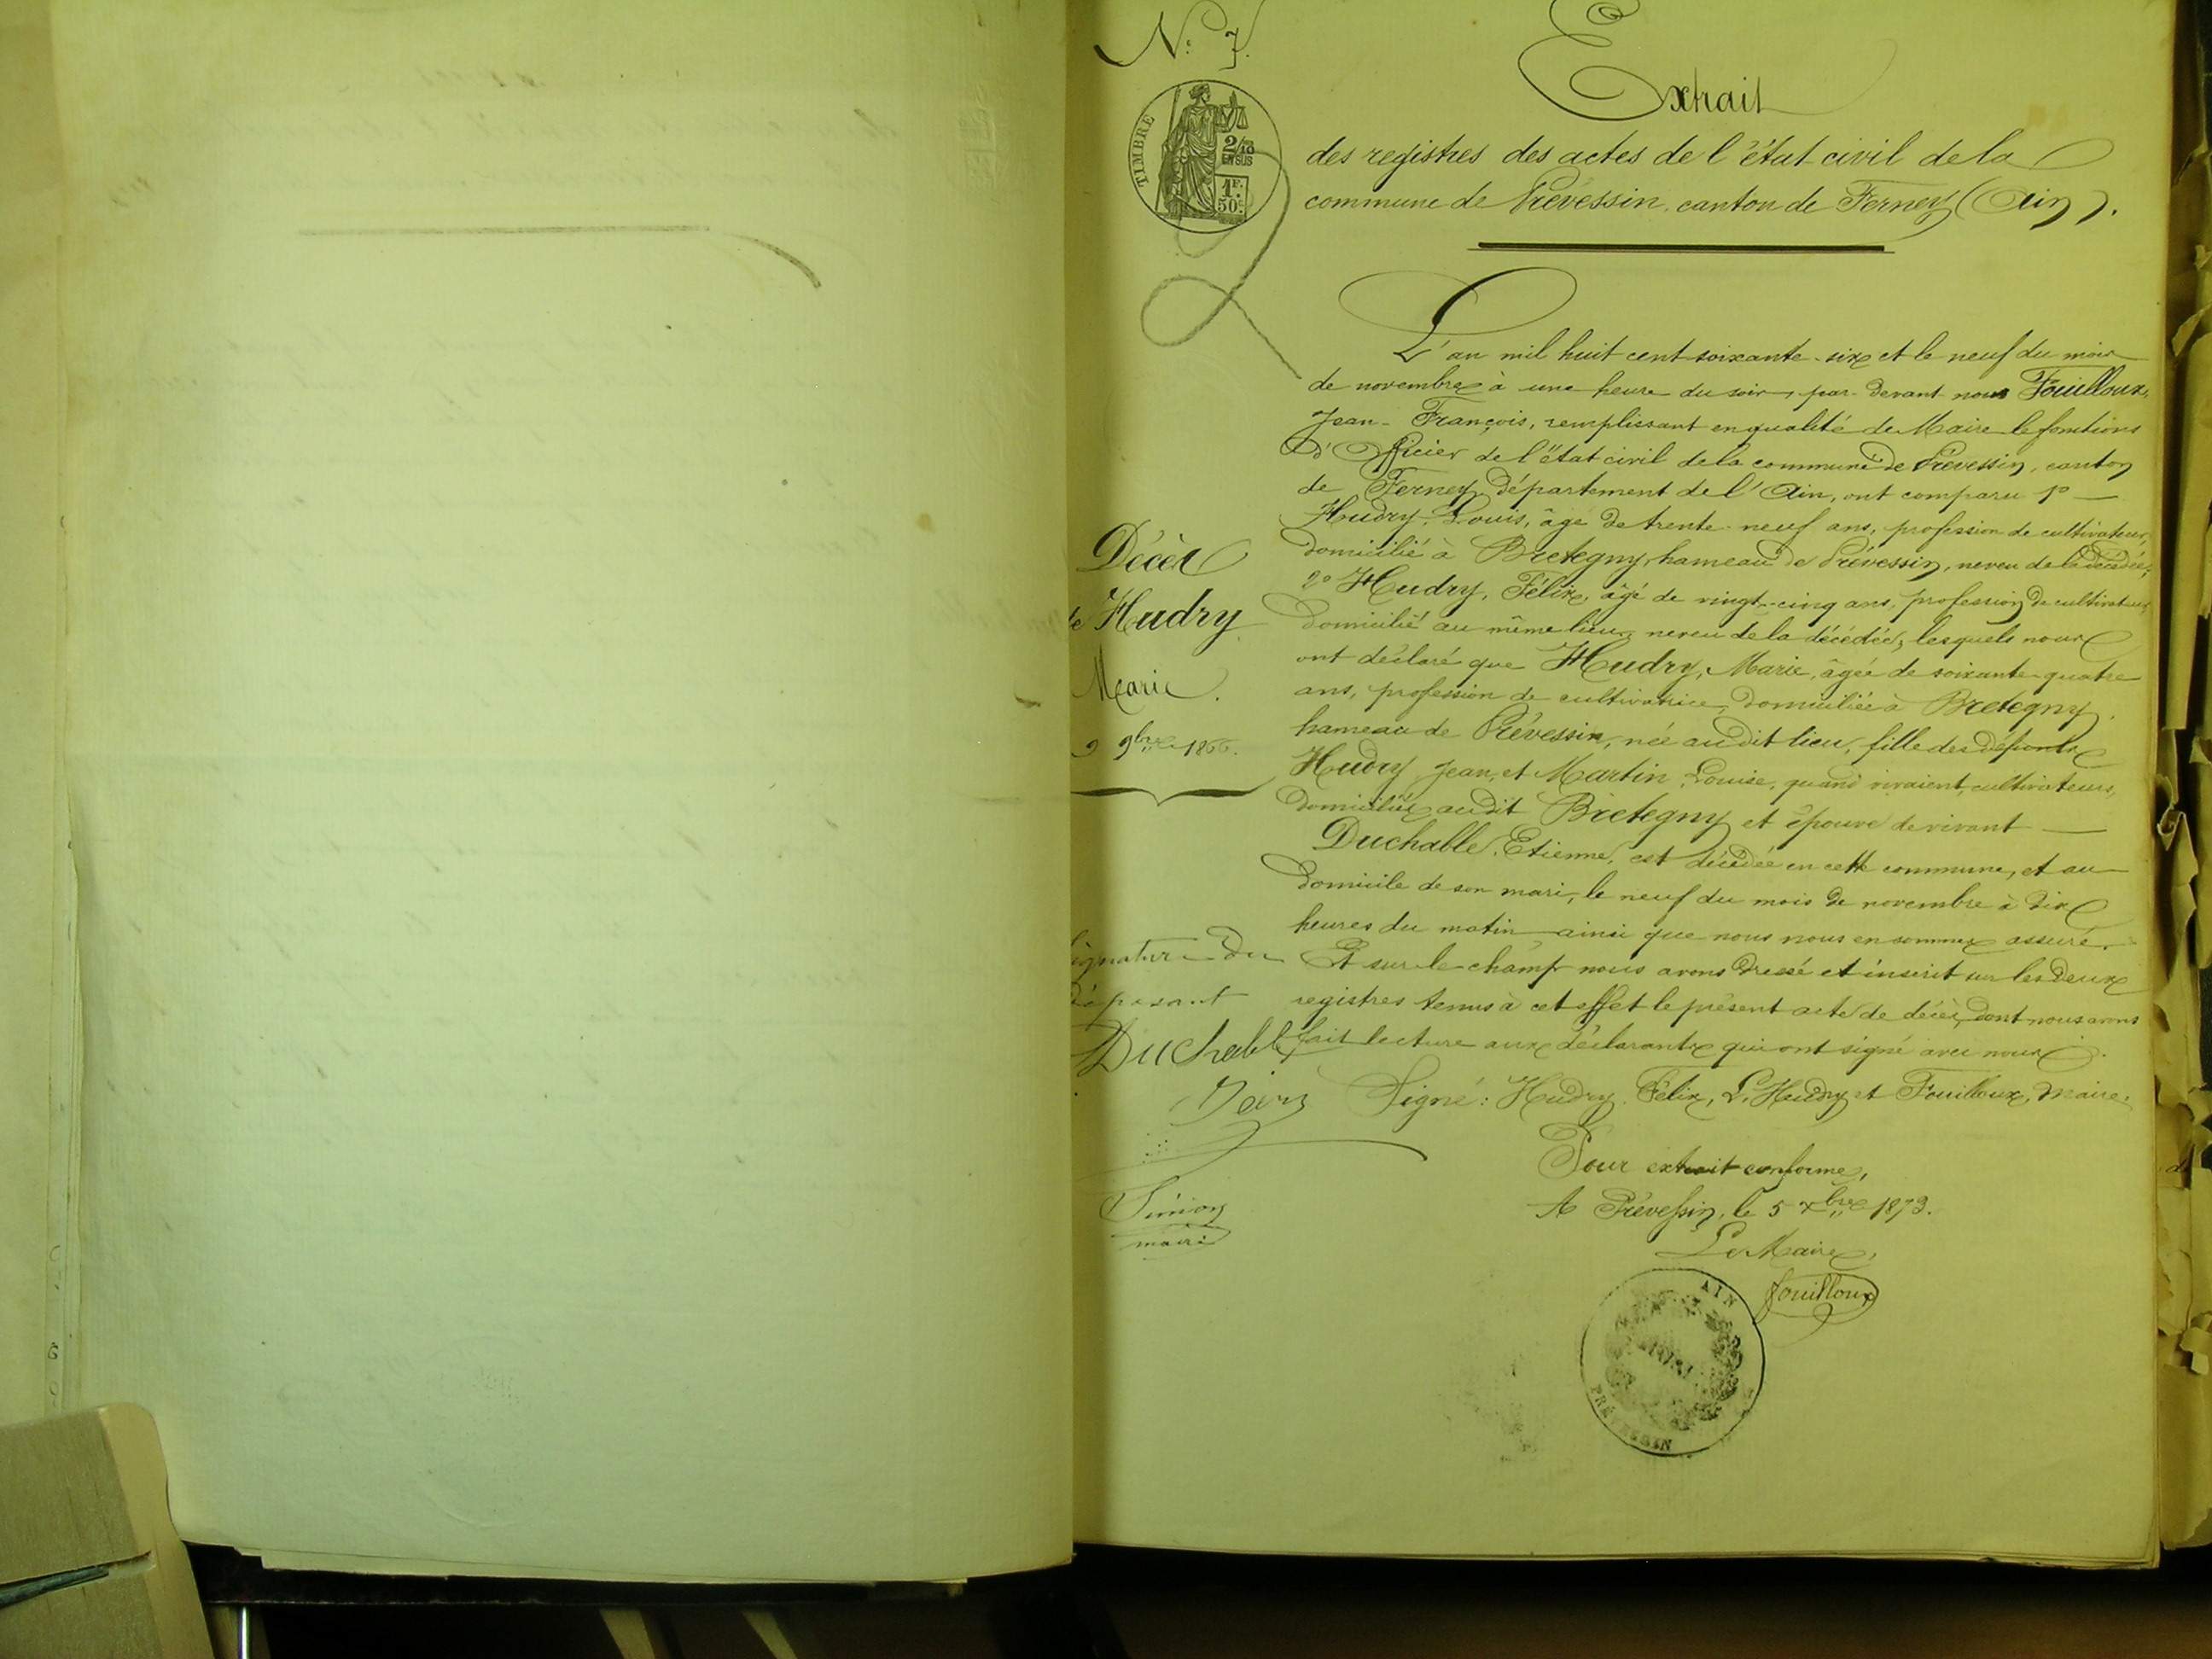 N.° 7.
TIMBRE
2/10
EN SUS
1F.
50c.
Extrait
des registres des actes de l'état civil de la
commune de Prévessin, canton de Ferney (Ain).
L'an mil huit cent soixante-six et le neuf du mois
de novembre à une heure du soir, par-devant nous Fouilloux,
Jean-François, remplissant en qualité de Maire le fonctions
d'Officier de l'état civil de la commune de Prévessin, canton
de Ferney, département de l'Ain, ont comparu 1°
Hudry, Louis, âgé de trente-neuf ans, profession de cultivateur,
domicilié à Bretegny, hameau de Prévessin, neveu de la décédée;
2° Hudry, Félix, âgé de vingt-cinq ans, profession de cultivateur,
domicilié au même lieu, neveu de la décédée, lesquels nous
ont déclaré que Hudry, Marie, âgée de soixante-quatre
ans, profession de cultivatrice, domiciliée à Bretegny,
hameau de Prévessin, née audit lieu, fille des défunts
Hudry Jean, et Martin, Louise, quand vivaient, cultivateurs,
domiciliés audit Bretegny et épouse de vivant
Duchable, Etienne, est décédée en cette commune, et au
domicile de son mari, le neuf du mois de novembre à dix
heures du matin ainsi que nous nous en sommes assuré.
Et sur-le-champ nous avons dressé et inscrit sur les deux
registres tenus à cet effet le présent acte de décès, dont nous avons
fait lecture aux déclarants qui ont signé avec nous.
Signé: Hudry Félix, L. Hudry et Fouilloux, maire.
Pour extrait conforme,
A Prévessin, le 5 xbre 1873.
Le Maire,
Fouilloux
AIN
PRÉVESSIN
Décès
de Hudry
Marie.
9 9bre 1866.
Signature du
déposant
Duchable
maire